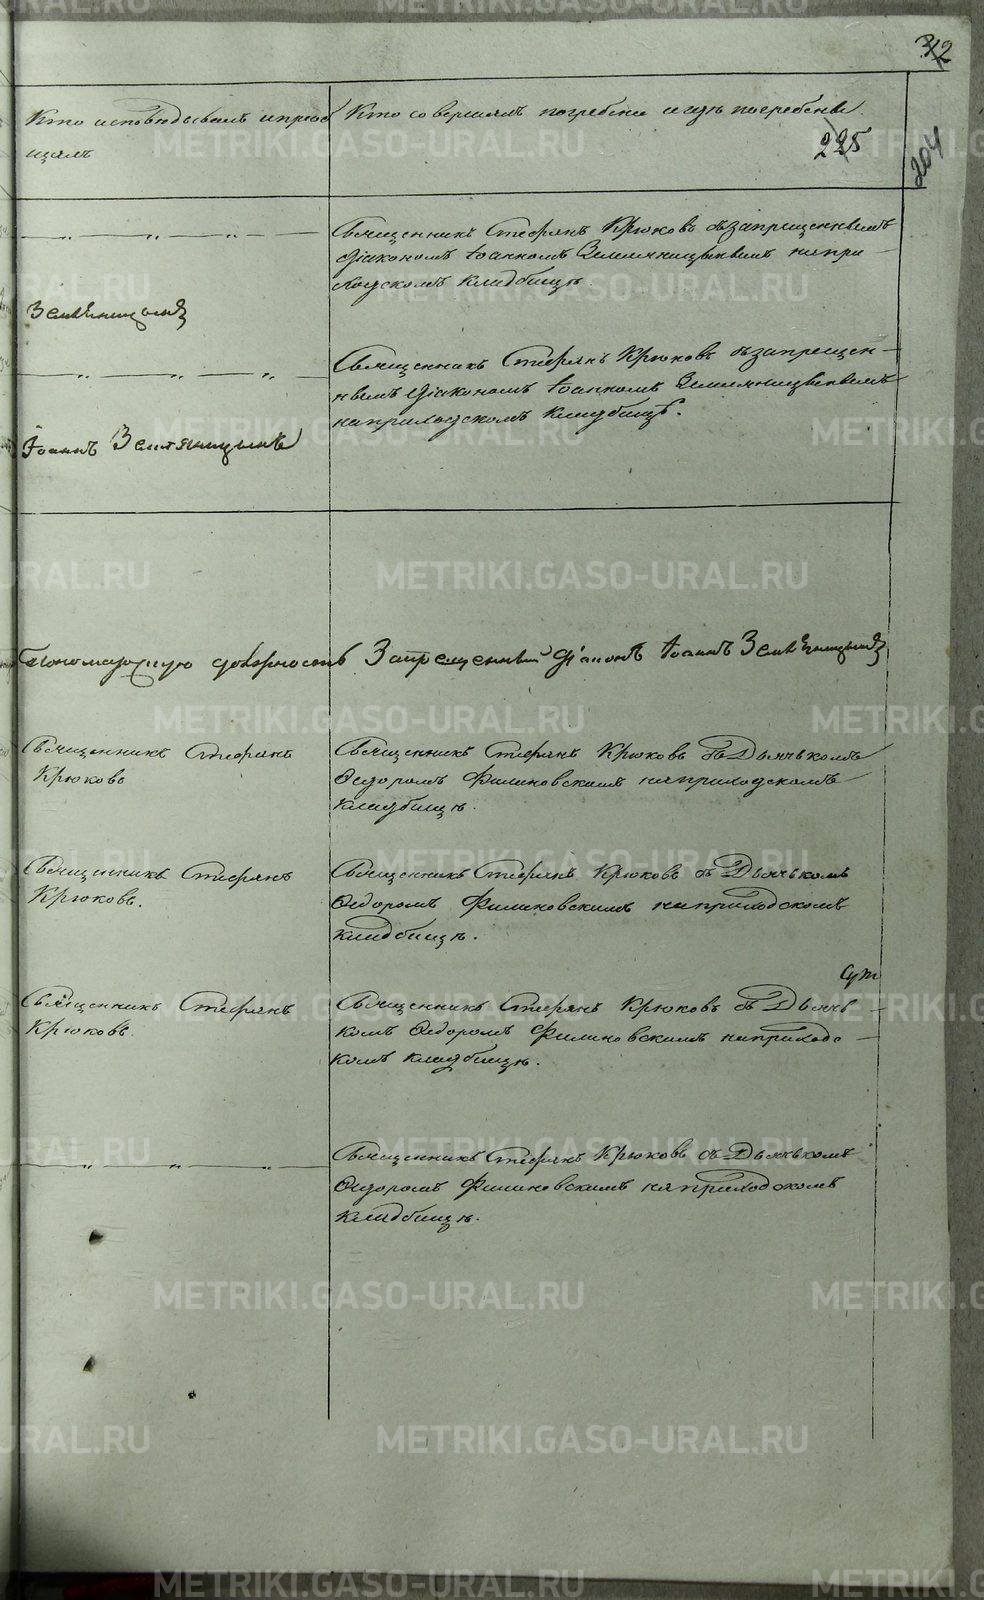 312
Кто исповѣдывалъ и приоб
щалъ
Кто совершалъ погребенiе и гдѣ погребены.
225
204
Священникъ Стефанъ Крюковъ съ запрещеннымъ
дiакономъ Iоанномъ Земляницынымъ на при
ходскомъ кладбищѣ.
Земляницынъ
Священникъ Стефанъ Крюковъ съ запрещен-
нымъ дiакономъ Iоанномъ Земляницынымъ
на приходскомъ кладбищѣ.
Iоаннъ Земляницынъ
Пономарскую должность Запрещенный дiаконъ Iоаннъ Земляницынъ
Священникъ Стефанъ
Крюковъ
Священникъ Стефанъ Крюковъ съ Дьячькомъ
Ѳедоромъ Филиновскимъ на приходскомъ
кладбищѣ.
Священникъ Стефанъ
Крюковъ.
Священникъ Стефанъ Крюковъ съ Дьячькомъ
Ѳедоромъ Филиновскимъ на приходскомъ
кладбищѣ.
Священникъ Стефанъ
Крюковъ
Священникъ Стефанъ Крюковъ съ Дьячь-
комъ Ѳедоромъ Филиновскимъ на приходс-
комъ кладбищѣ.
Священникъ Стефанъ Крюковъ съ Дьячькомъ
Ѳедоромъ Филиновскимъ на приходскомъ
кладбищѣ.
METRIKI.GASO-URAL.RU